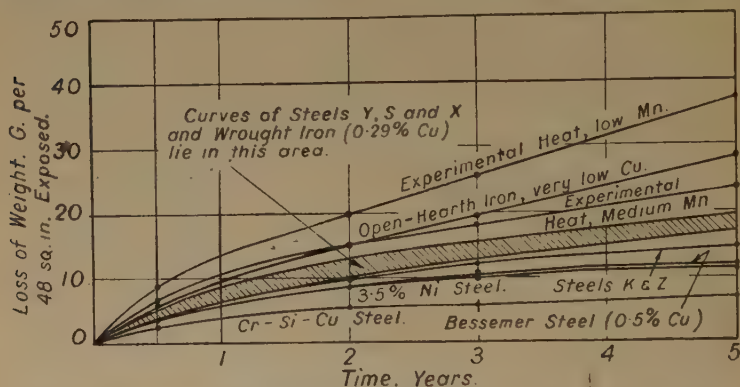 50
40
30
20
10
0
Loss of Weight. G. per
48 sq. in. Exposed.
Curves of Steels Y, S and X
and Wrought Iron (0·29% Cu)
lie in this area.
Experimental Heat, low Mn.
Open-Hearth Iron, very low Cu.
Experimental
Heat, Medium Mn
3·5% Ni Steel.
Steels K & Z
Cr-Si-Cu Steel.
Bessemer Steel (0·5% Cu)
1
2
3
4
5
Time, Years.